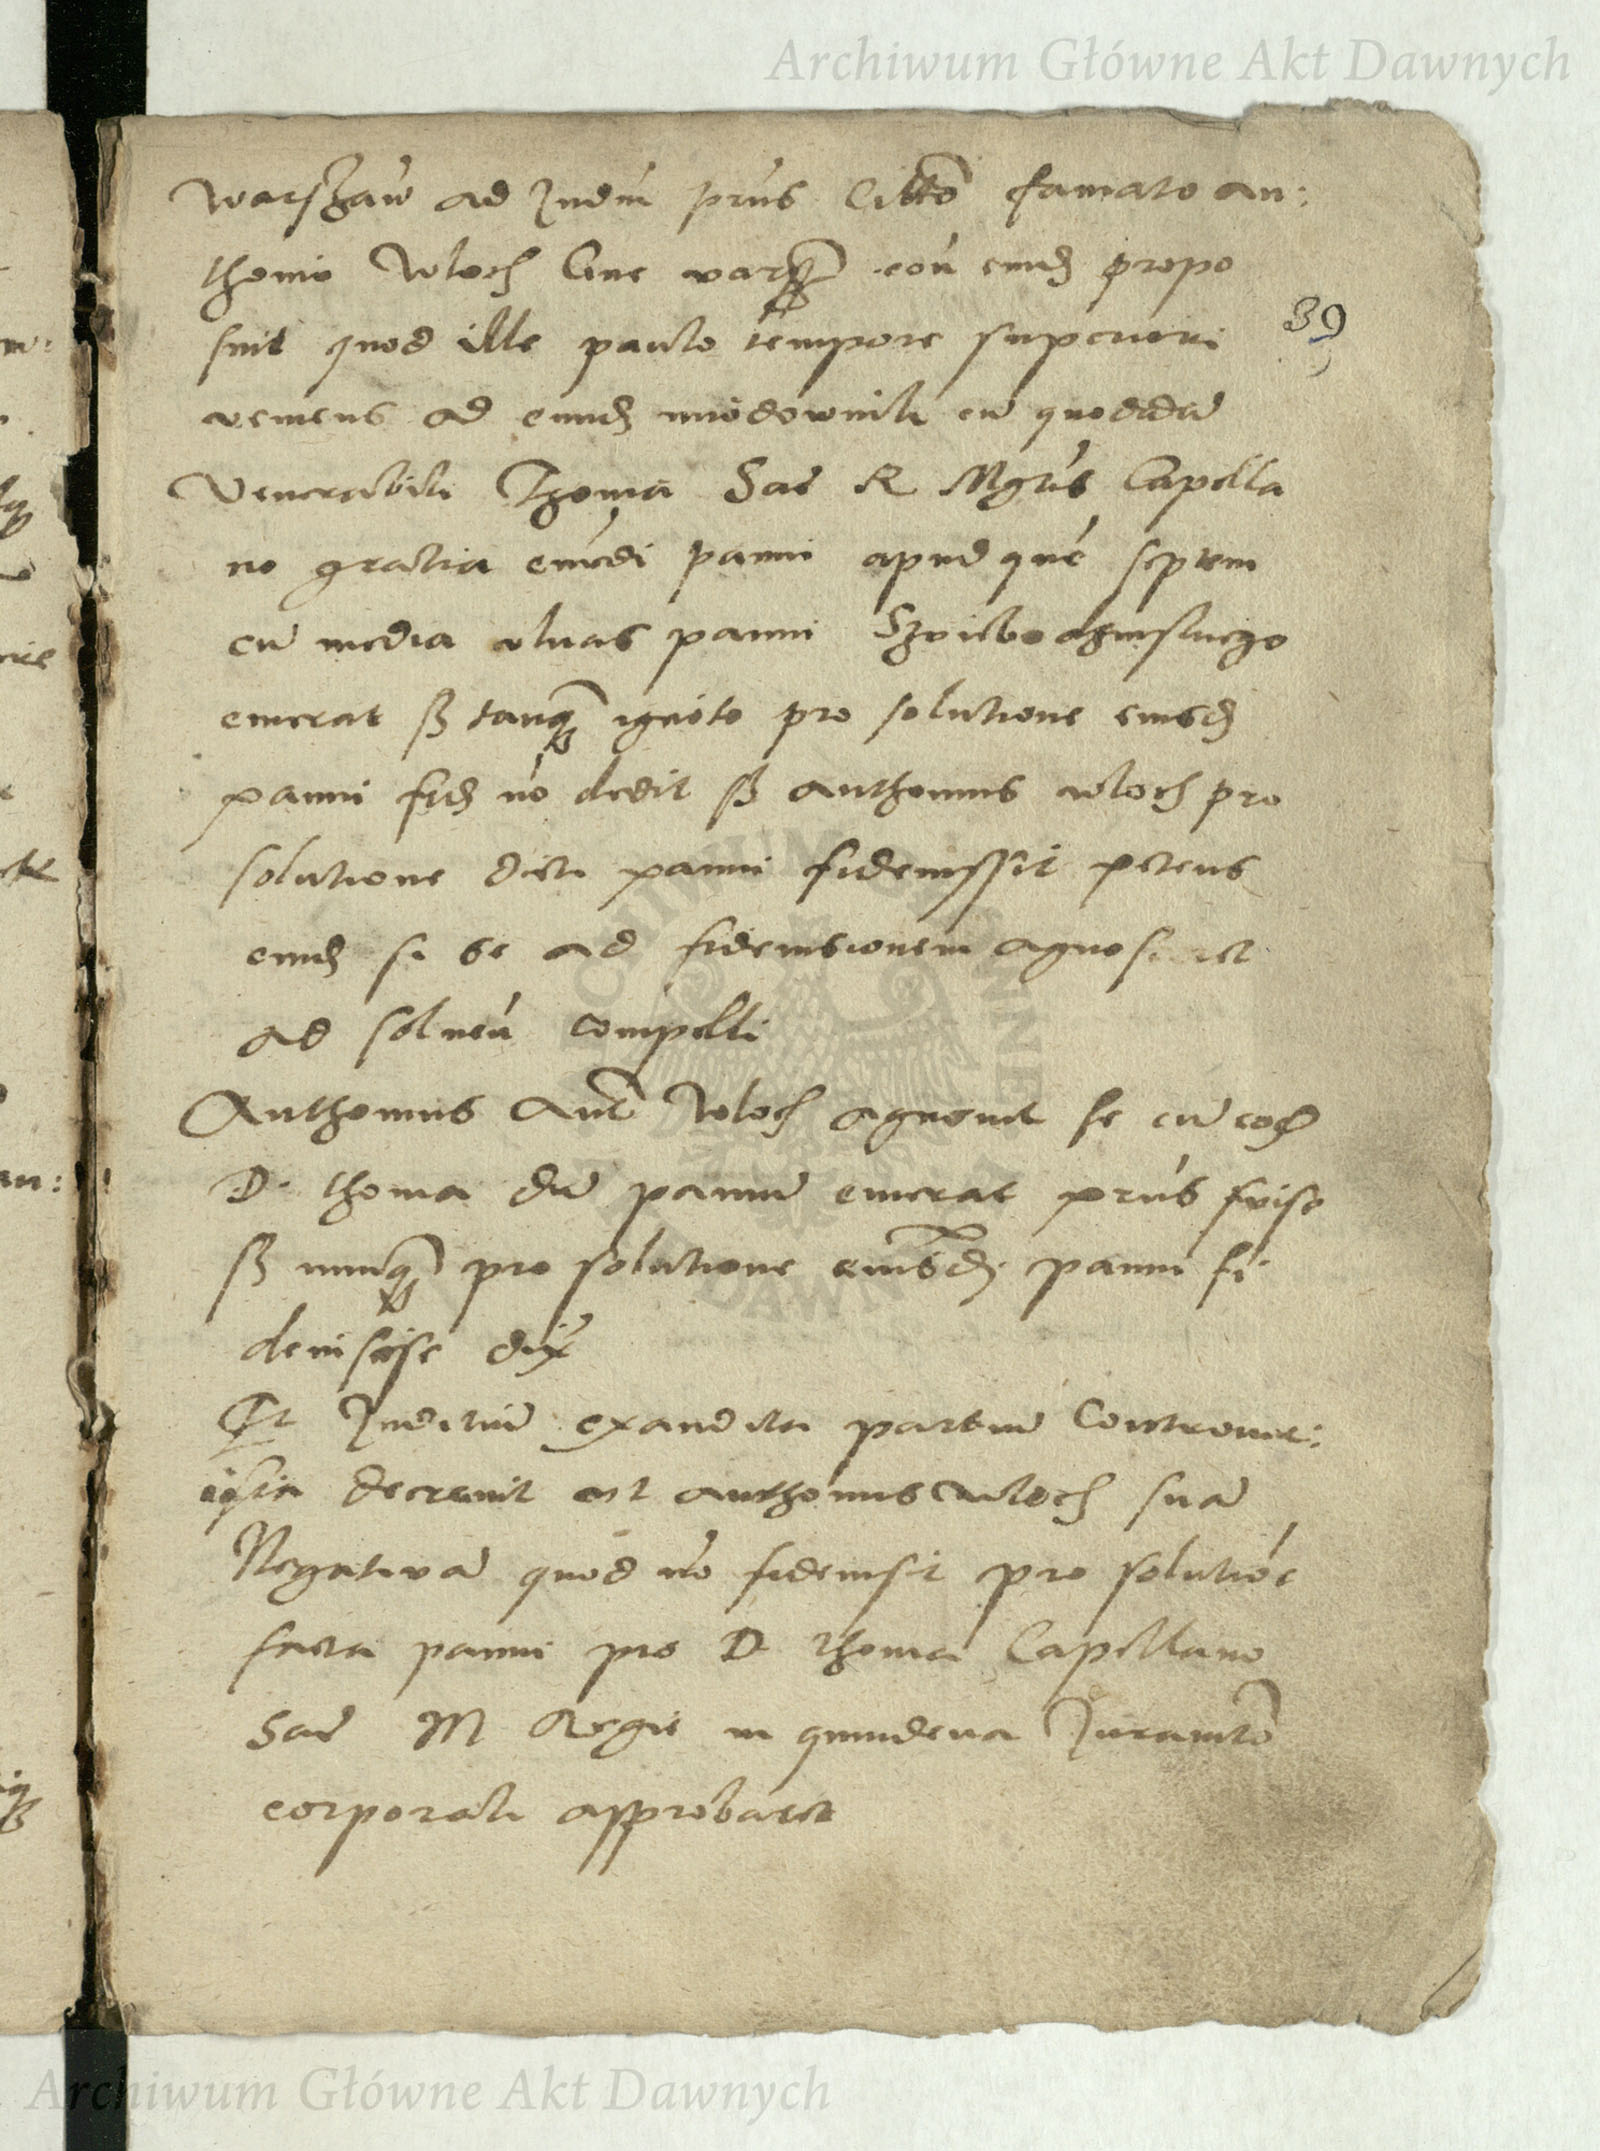 Archiwum Główne Akt Dawnych
Warszav ad Judiu prns Citto famato An:
thonio Wloch Cive eou eund propo
39
suit quod ille paulo tempore superiori
veniens ad eund miodownik cu quodda
Venerabili Thoma Sac R Mgtis Capella
no gratia emedi panni apud que septem
cu media ulnas panni
emerat sz tanq ignoto pro solutione eiusd
panni fid no dedit sz Anthonius Wloch pro
solutione dicti panni fideiussit petens
eund si se ad fideiusionem agnosceret
ad solueu compelli
Anthonius Aut Wloch agnovit se cu eod
D. thoma du pannu emerat prns fuise
sz nunq pro solutione eiusd panni fi
deiusise dix
Et Juditiu exaudita partiu Controver:
sia decrevit ut Anthonius Wloch sua
Negativa quod no fideiusit pro solutioe
facta panni pro D thoma Capellano
Sac M Regie in quindena Juramto
corporali approbaret
ARCHIWUM GŁÓWNE
AKT DAWNYCH
Archiwum Główne Akt Dawnych